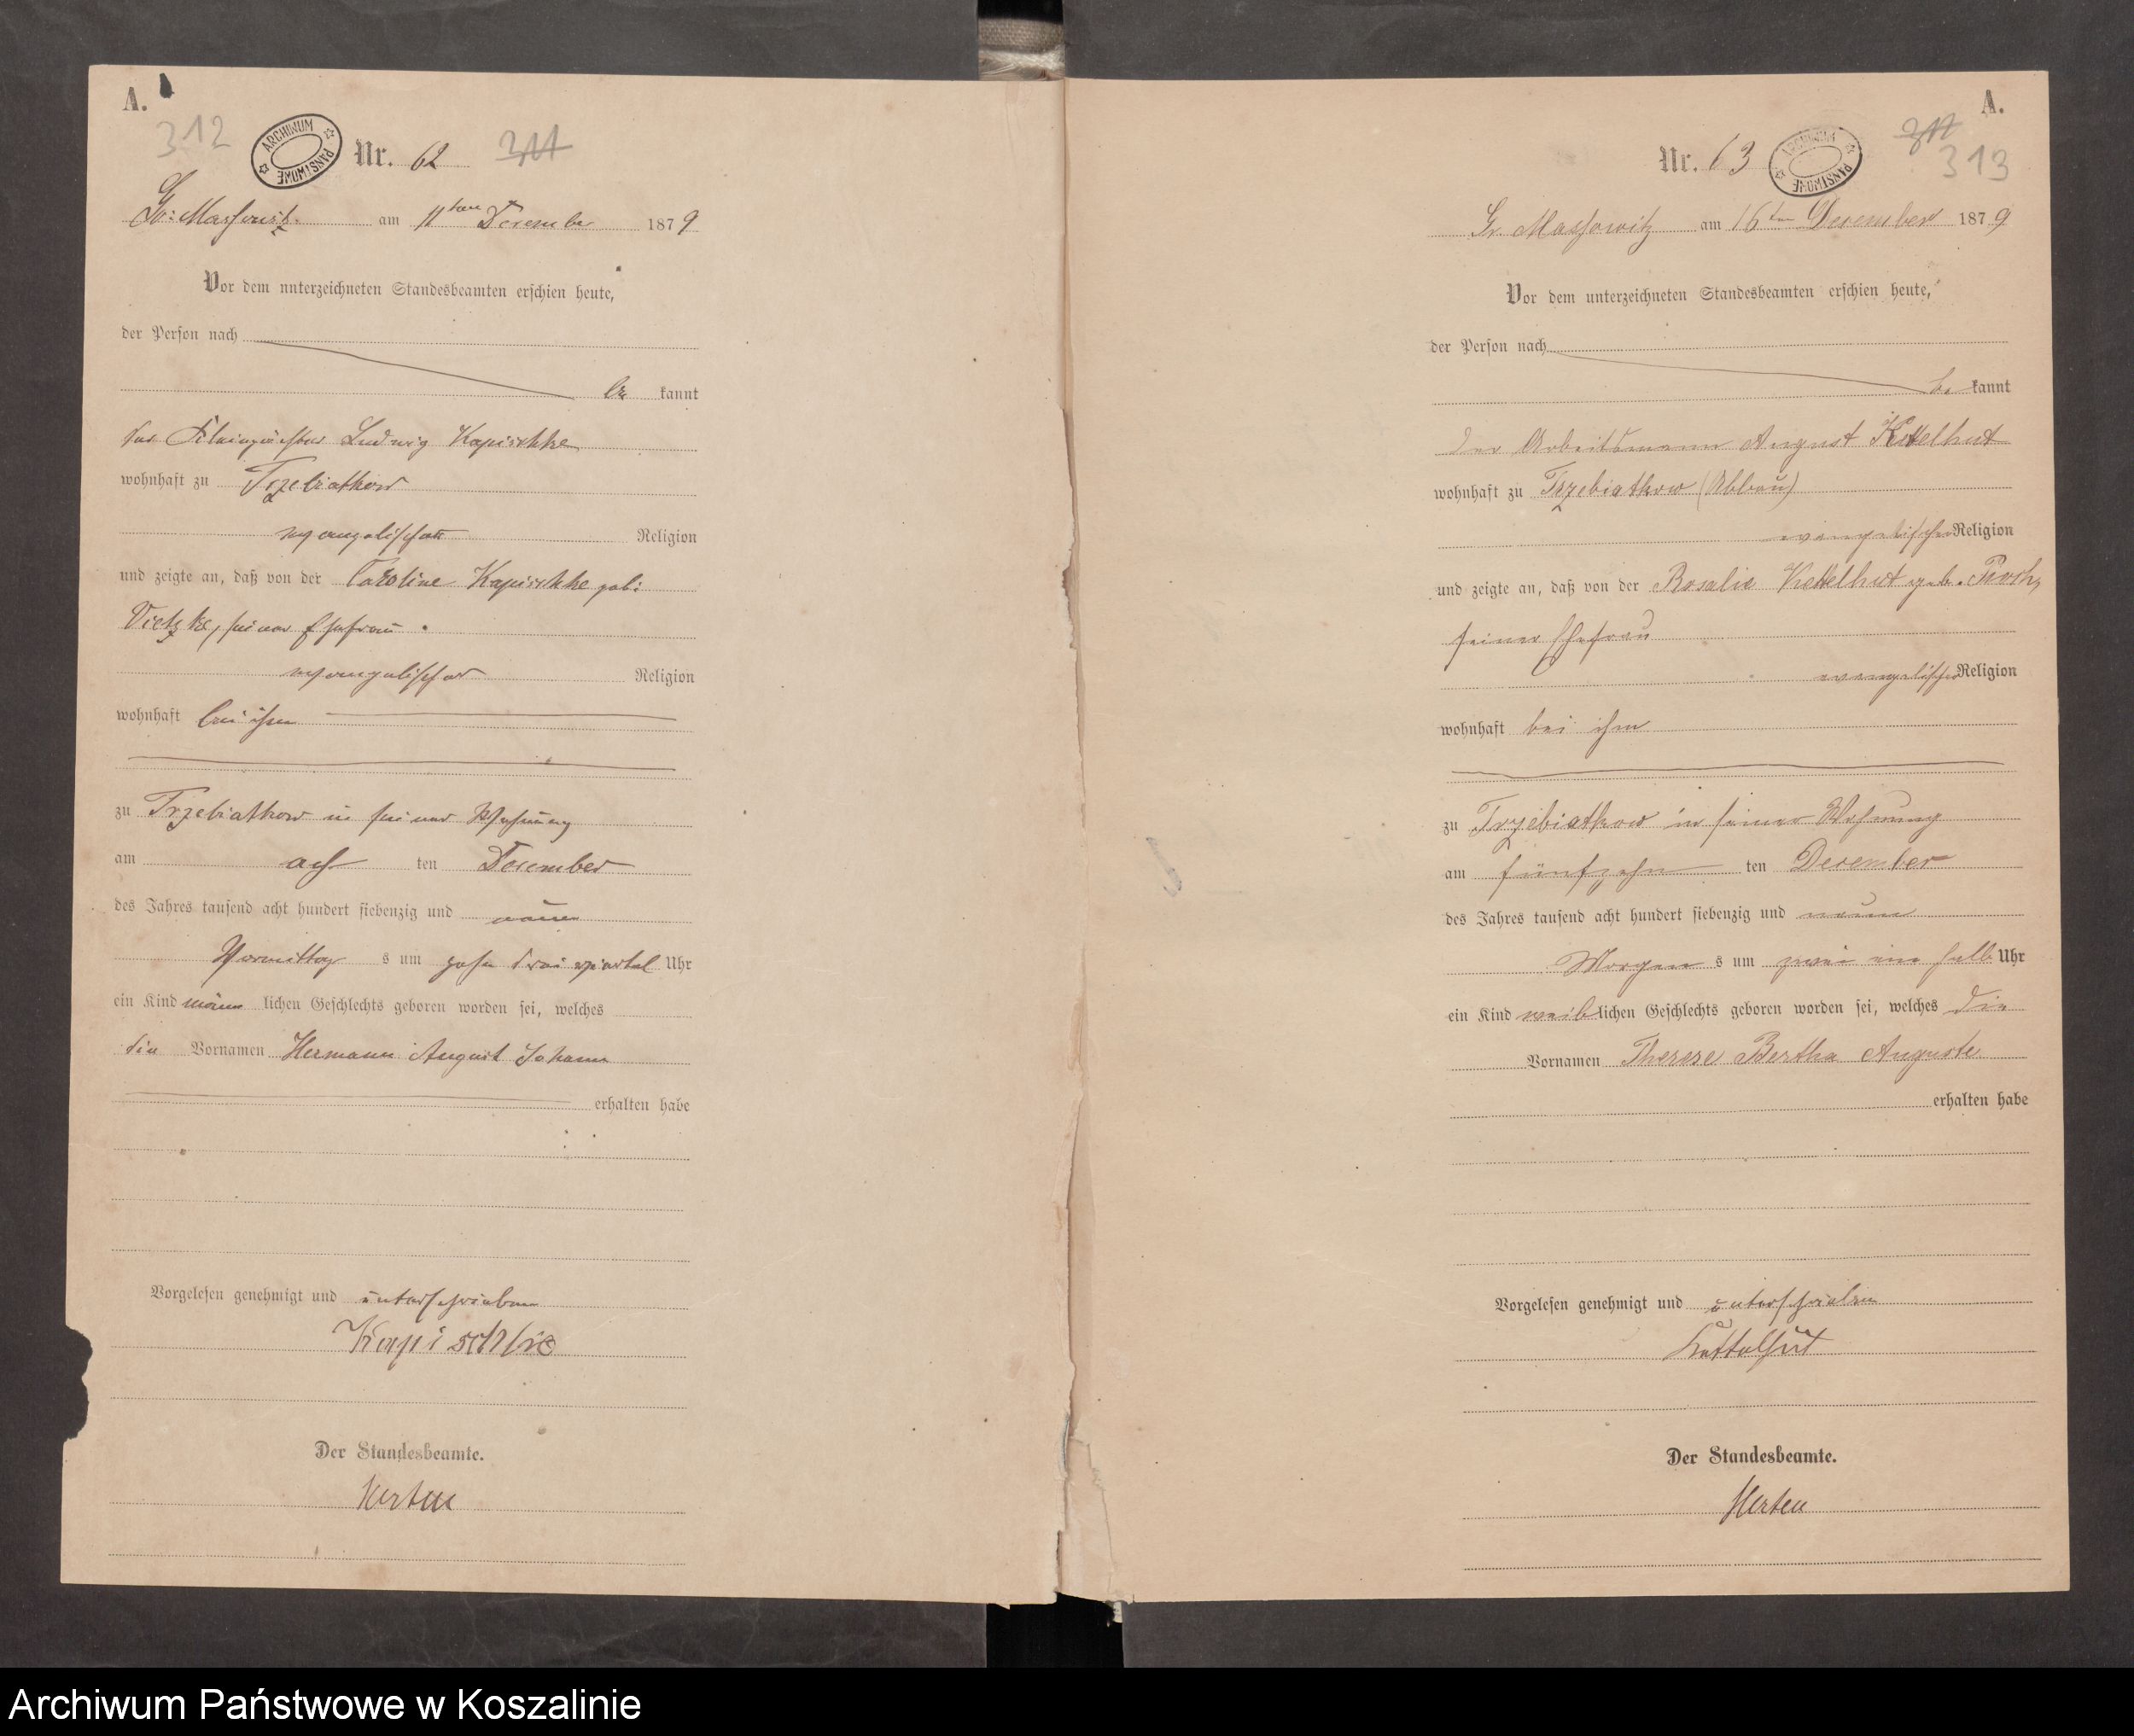 A.
312
ARCHIWUM PAŃSTWOWE
Nr. 62
311
Gr: Massowitz. am 11ten December 1879
Vor dem unterzeichneten Standesbeamten erschien heute,
der Person nach
be kannt
der Ludwig Kapischke
wohnhaft zu Trzebiatkow
evangelischer Religion
und zeigte an, daß von der Caroline Kapischke geb:
Vietzke, seiner Ehefrau
evangelischer Religion
wohnhaft bei ihm
zu Trzebiatkow in seiner Wohnung
am acht ten December
des Jahres tausend acht hundert siebenzig und neun
Vormittag s um zehn drei viertel Uhr
ein Kind männ lichen Geschlechts geboren worden sei, welches
die Vornamen Hermann August Johann
erhalten habe
Vorgelesen genehmigt und unterschrieben
Kapischke
Der Standesbeamte.
Herten
A.
Nr. 63
ARCHIWUM PAŃSTWOWE
313
Gr. Massowitz am 16ten December 1879
Vor dem unterzeichneten Standesbeamten erschien heute,
der Person nach
be kannt
der Arbeitsmann August Kettelhut
wohnhaft zu Trzebiatkow (Abbau)
evangelischer Religion
und zeigte an, daß von der Rosalie Kettelhut geb.
seiner Ehefrau
evangelischer Religion
wohnhaft bei ihm
zu Trzebiatkow in seiner Wohnung
am fünfzehn ten December
des Jahres tausend acht hundert siebenzig und neun
Morgen s um zwei ein halb Uhr
ein Kind weiblichen Geschlechts geboren worden sei, welches die
Vornamen Therese Bertha Auguste
erhalten habe
Vorgelesen genehmigt und unterschrieben
Kettelhut
Der Standesbeamte.
Herten
Archiwum Państwowe w Koszalinie